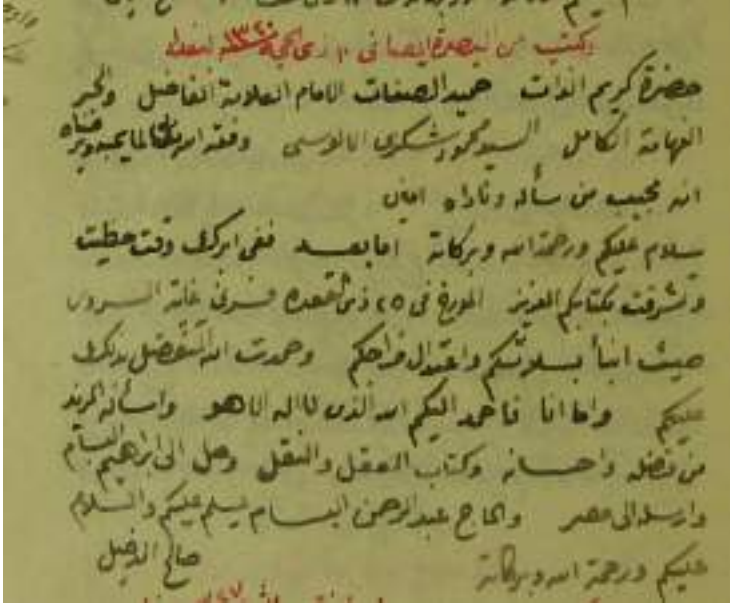 يكتب من البصرة ايضا في ١٠ ذي الحجة ١٣٢٠
حضرة كريم الذات حميد الصفات الامام العلامة الفاضل والحبر
الفهامة الكامل السيد محمود شكري الالوسي وفقه الله تعالى لما يحبه ويرضاه
انه مجيب من سأله وناداه امين
سلام عليكم ورحمة الله وبركاته اما بعد ففي ابرك وقت حظيت
وتشرفت بكتابكم العزيز المورخ في ٢٥ ذي القعدة فسرني غاية السرور
حيث انبأ بسلامتكم واعتدال مزاجكم وحمدت الله المتفضل بذلك
عليكم واما انا فاحمد اليكم الله الذي لا اله الا هو واسأله المزيد
من فضله واحسانه وكتاب العقل والنقل وصل الى ابراهيم البسام
وارسله الى مصر والحاج عبد الرحمن البسام يسلم عليكم والسلام
عليكم ورحمة الله وبركاته صالح الدخيل